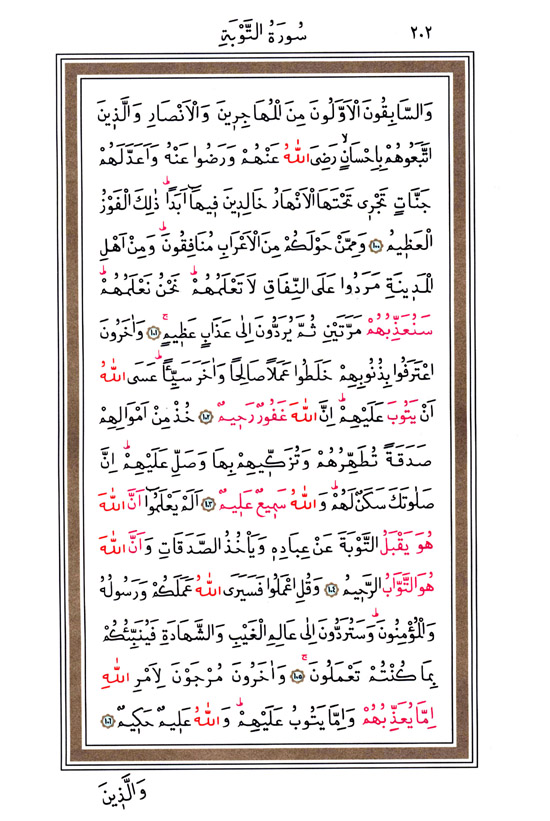 سُورَةُ التَّوْبَةِ ٢٠٢
وَالسَّابِقُونَ الْاَوَّلُونَ مِنَ الْمُهَاجِرٖينَ وَالْاَنْصَارِ وَالَّذٖينَ
اتَّبَعُوهُمْ بِاِحْسَانٍۙ رَضِیَ اللّٰهُ عَنْهُمْ وَرَضُوا عَنْهُ وَاَعَدَّ لَهُمْ
جَنَّاتٍ تَجْرٖی تَحْتَهَا الْاَنْهَارُ خَالِدٖينَ فٖيهَٓا اَبَدًاۜ ذٰلِكَ الْفَوْزُ
الْعَظٖيمُ ﴿١٠٠﴾ وَمِمَّنْ حَوْلَكُمْ مِنَ الْاَعْرَابِ مُنَافِقُونَۜ وَمِنْ اَهْلِ
الْمَدٖينَةِ مَرَدُوا عَلَى النِّفَاقِ لَا تَعْلَمُهُمْۜ نَحْنُ نَعْلَمُهُمْۜ
سَنُعَذِّبُهُمْ مَرَّتَيْنِ ثُمَّ يُرَدُّونَ اِلٰى عَذَابٍ عَظٖيمٍۚ ﴿١٠١﴾ وَاٰخَرُونَ
اعْتَرَفُوا بِذُنُوبِهِمْ خَلَطُوا عَمَلًا صَالِحًا وَاٰخَرَ سَيِّئًاۜ عَسَى اللّٰهُ
اَنْ يَتُوبَ عَلَيْهِمْۜ اِنَّ اللّٰهَ غَفُورٌ رَحٖيمٌ ﴿١٠٢﴾ خُذْ مِنْ اَمْوَالِهِمْ
صَدَقَةً تُطَهِّرُهُمْ وَتُزَكّٖيهِمْ بِهَا وَصَلِّ عَلَيْهِمْۜ اِنَّ
صَلٰوتَكَ سَكَنٌ لَهُمْۜ وَاللّٰهُ سَمٖيعٌ عَلٖيمٌ ﴿١٠٣﴾ اَلَمْ يَعْلَمُٓوا اَنَّ اللّٰهَ
هُوَ يَقْبَلُ التَّوْبَةَ عَنْ عِبَادِهٖ وَيَأْخُذُ الصَّدَقَاتِ وَاَنَّ اللّٰهَ
هُوَ التَّوَّابُ الرَّحٖيمُ ﴿١٠٤﴾ وَقُلِ اعْمَلُوا فَسَيَرَى اللّٰهُ عَمَلَكُمْ وَرَسُولُهُ
وَالْمُؤْمِنُونَۜ وَسَتُرَدُّونَ اِلٰى عَالِمِ الْغَيْبِ وَالشَّهَادَةِ فَيُنَبِّئُكُمْ
بِمَا كُنْتُمْ تَعْمَلُونَۚ ﴿١٠٥﴾ وَاٰخَرُونَ مُرْجَوْنَ لِاَمْرِ اللّٰهِ
اِمَّا يُعَذِّبُهُمْ وَاِمَّا يَتُوبُ عَلَيْهِمْۜ وَاللّٰهُ عَلٖيمٌ حَكٖيمٌ ﴿١٠٦﴾
وَالَّذٖينَ